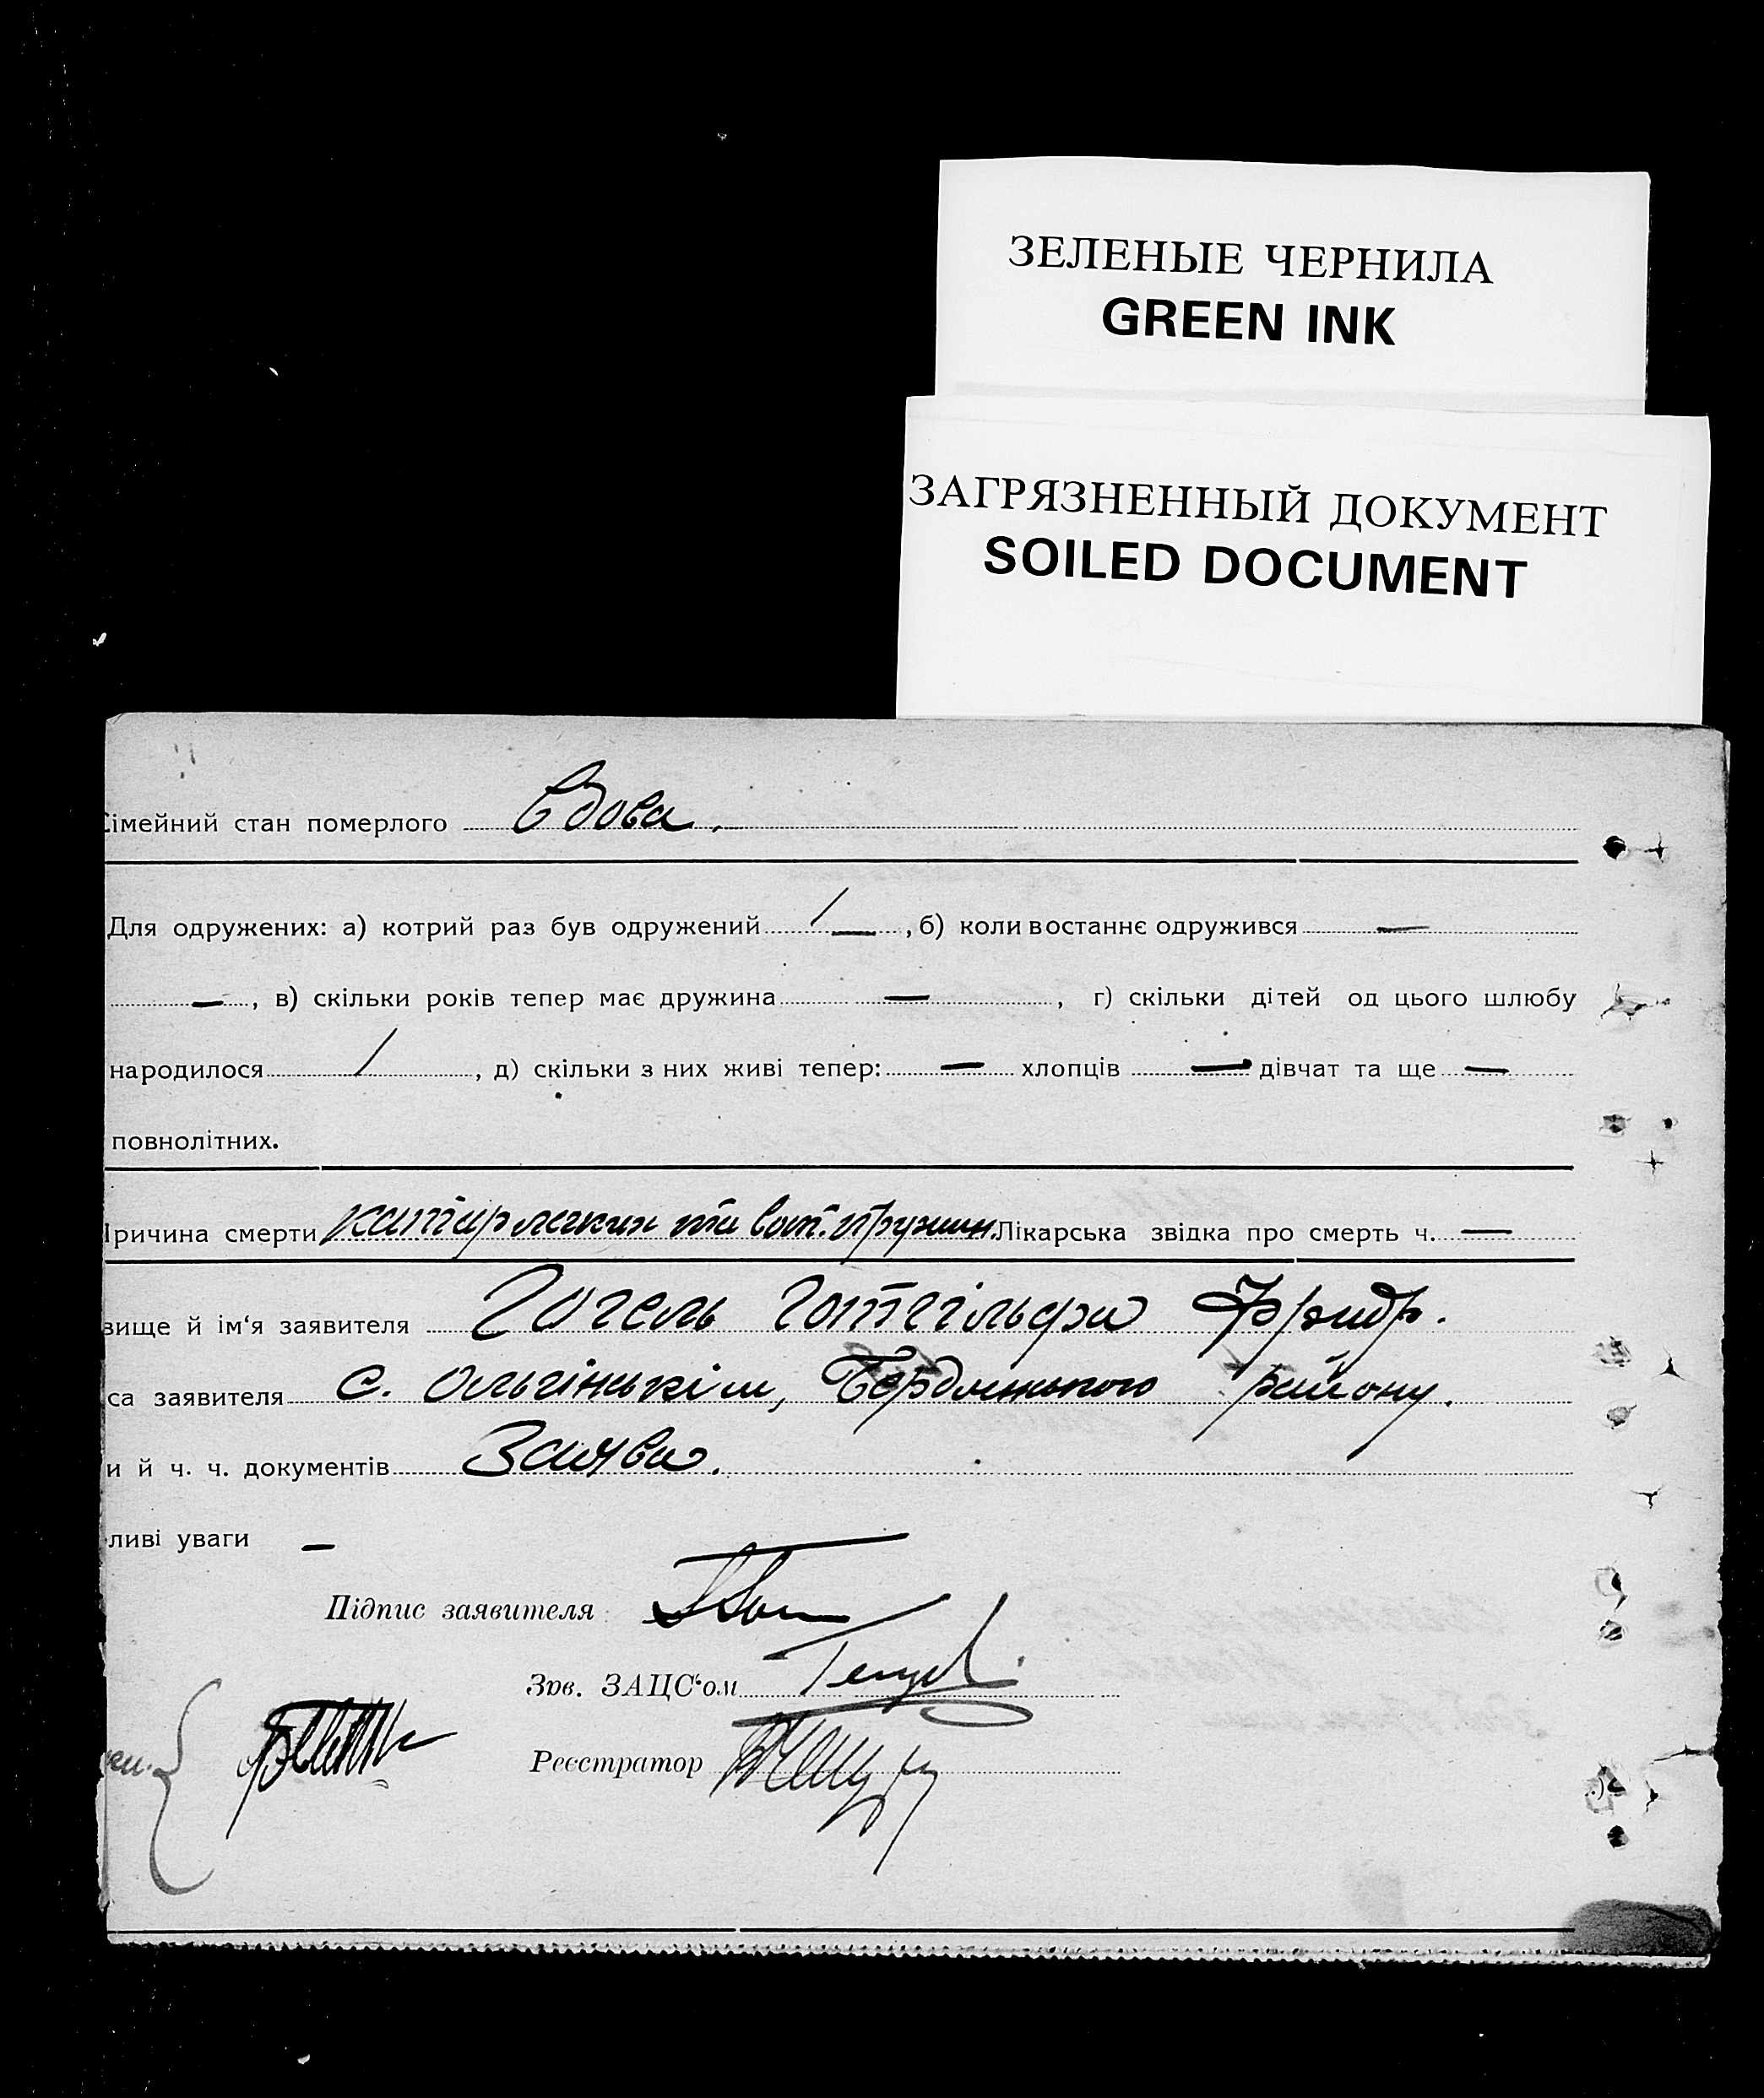 ЗЕЛЕНЫЕ ЧЕРНИЛА
GREEN INK
ЗАГРЯЗНЕННЫЙ ДОКУМЕНТ
SOILED DOCUMENT
Сімейний стан померлого Вдова.
Для одружених: а) котрий раз був одружений / —, б) коли востаннє одружився —
—, в) скільки років тепер має дружина —, г) скільки дітей од цього шлюбу
народилося /, д) скільки з них живі тепер: — хлопців — дівчат та ще —
повнолітних.
Причина смерти катар легких та Лікарська звідка про смерть ч. —
вище й ім‘я заявителя Гогель Готгільфа Фридр.
са заявителя с. Ольгінськім, Бердянського району.
и й ч. ч. документів Заява.
ливі уваги —
Підпис заявителя
Зав. ЗАЦС‘ом
Реєстратор